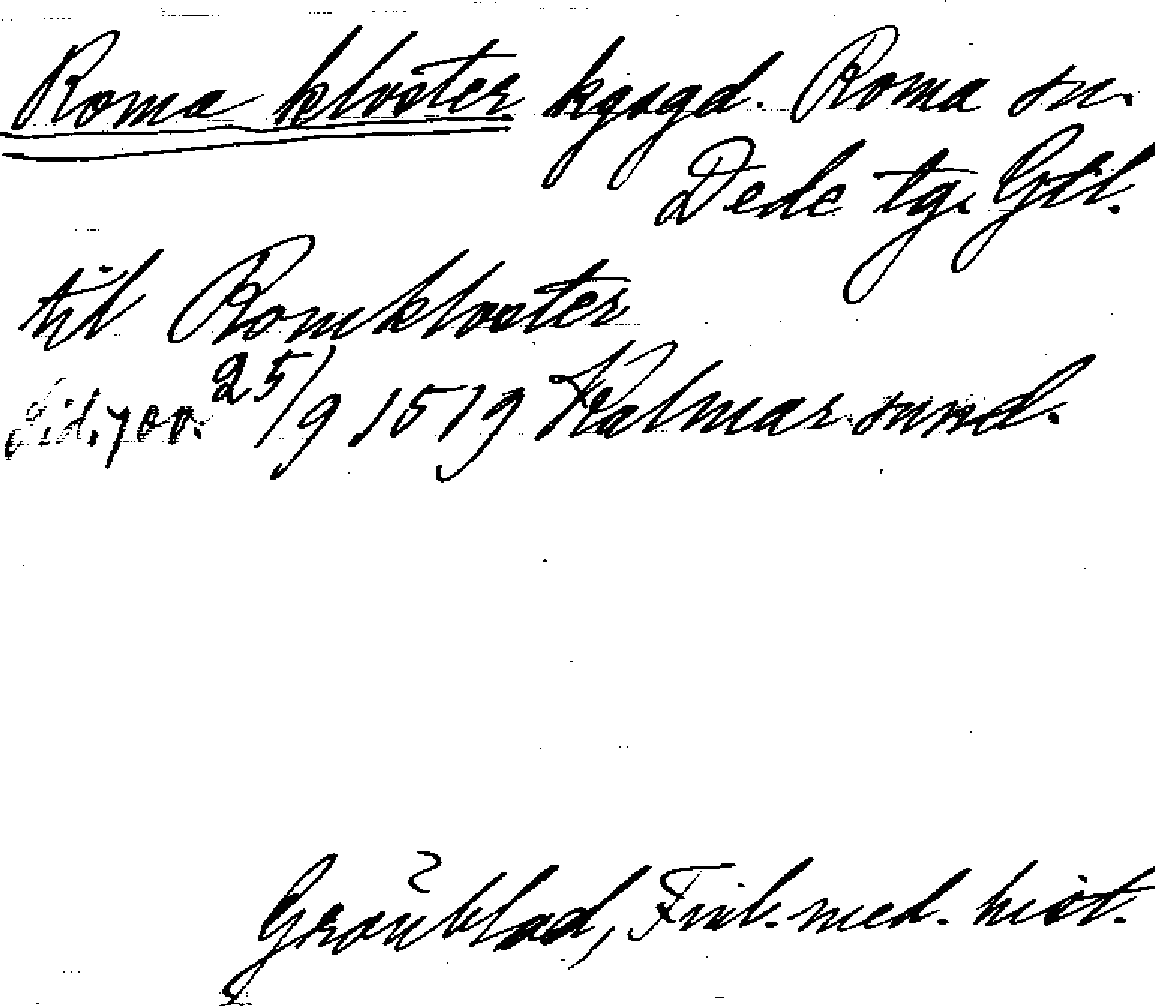 Roma kloster kgsgd. Roma sn.
Dede tg. Gtl.
til Romkloster
Sid. 700. 25/9 1519 Kalmarsund.
Grönblad, Finl. med. hist.